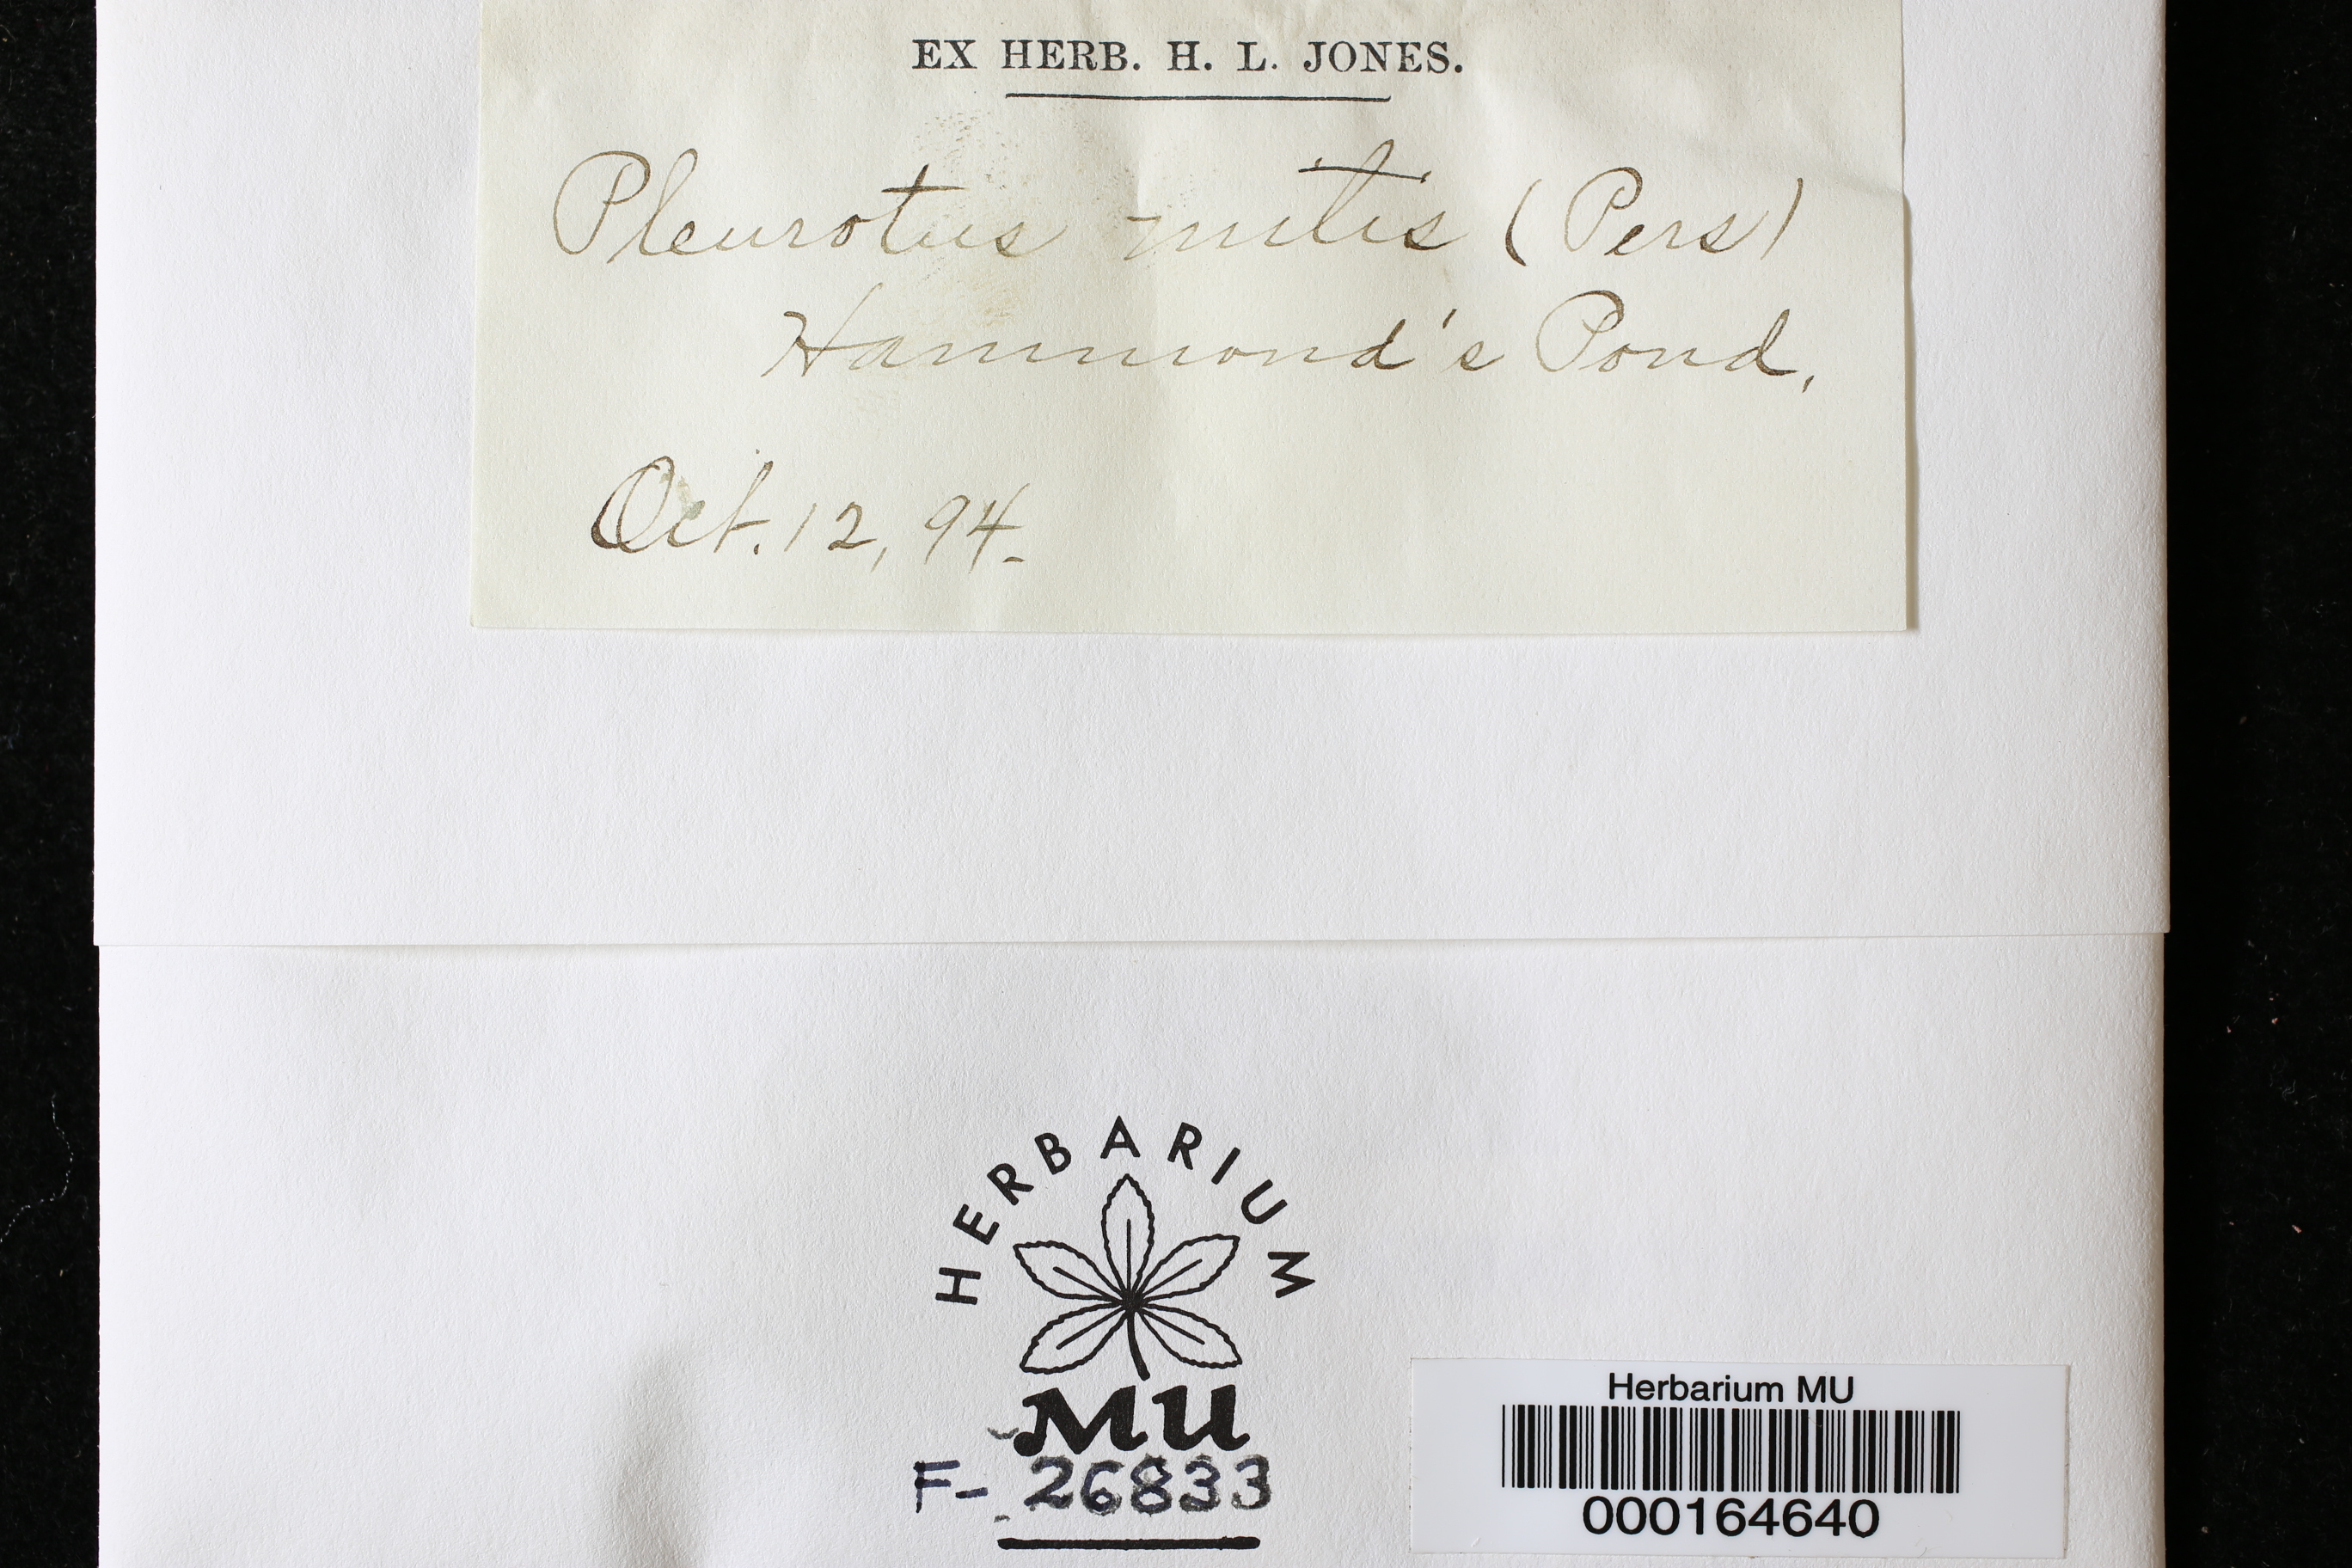 EX HERB. H. L. JONES.
Pleurotus mitis (Pers)
Hammond's Pond,
Oct. 12, 94.
HERBARIUM
MU
F- 26833
Herbarium MU
000164640